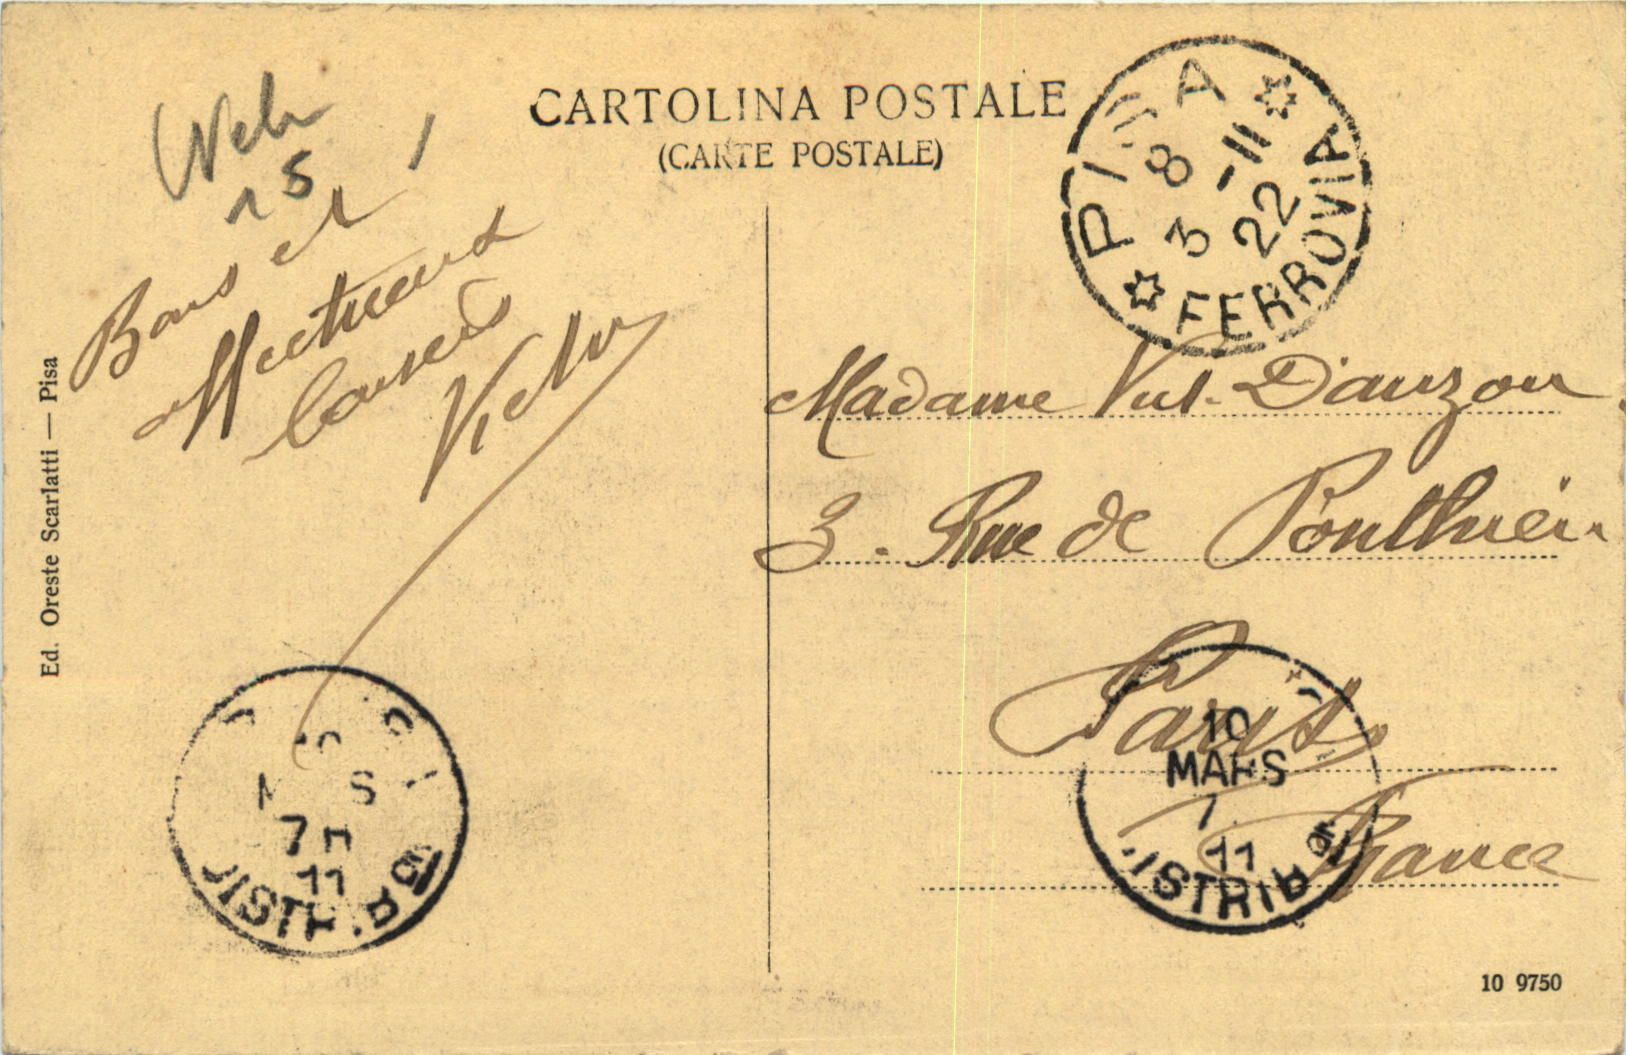 CARTOLINA POSTALE
(CARTE POSTALE)
PISA
8 3 -11 22
FERROVIA
15
Bons et
affectueux
baisers
Madame Danzon
3. Rue de Ponthieu
Paris
France
10
MARS
7
11
DISTRIB
7
11
DISTRIB
Ed. Oreste Scarlatti — Pisa
10 9750